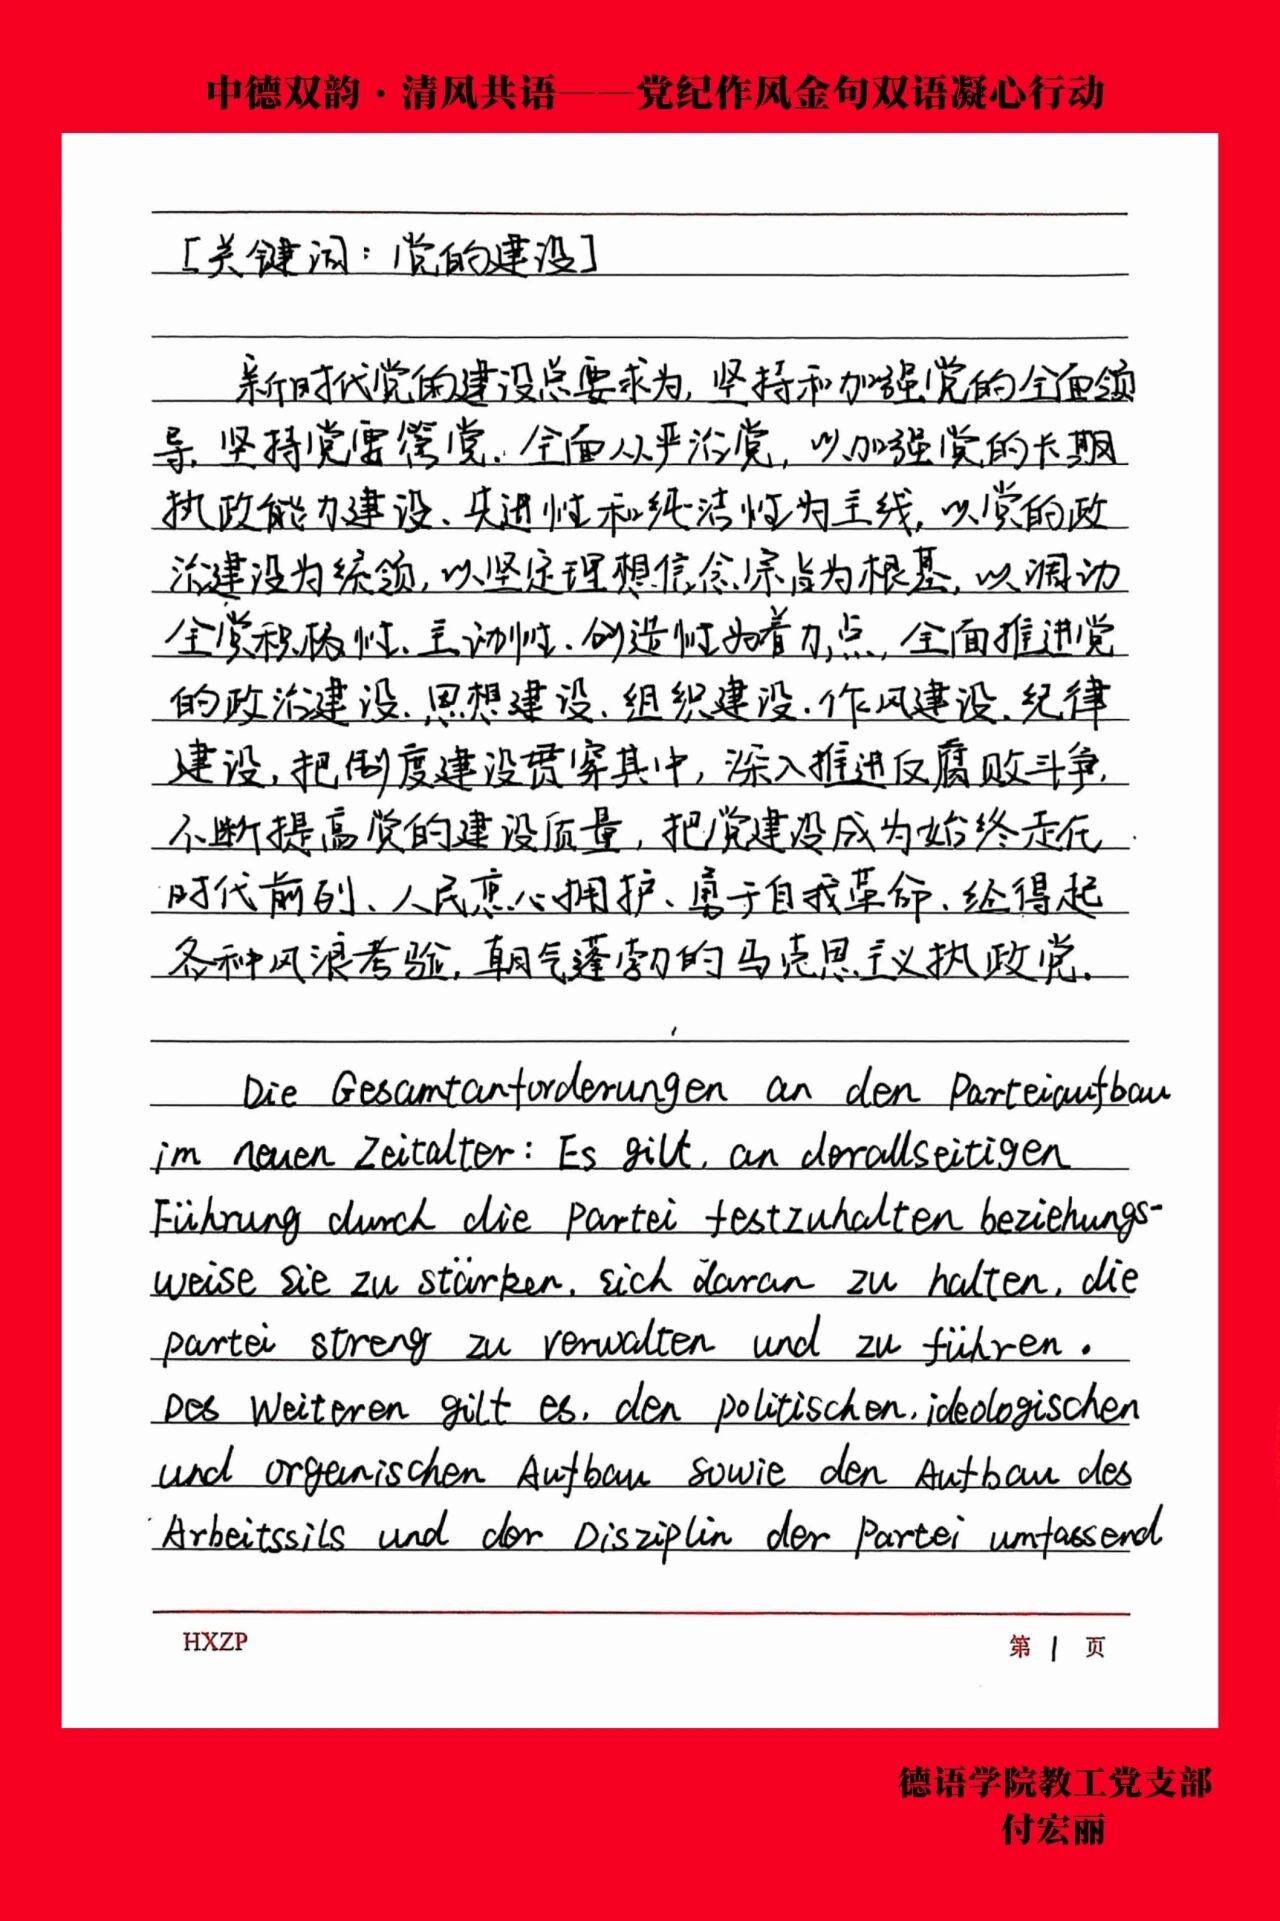 中德双韵·清风共语——党纪作风金句双语凝心行动
[关键词：党的建设]
新时代党的建设总要求为，坚持和加强党的全面领
导，坚持党要管党、全面从严治党，以加强党的长期
执政能力建设、先进性和纯洁性为主线，以党的政
治建设为统领，以坚定理想信念宗旨为根基，以调动
全党积极性、主动性、创造性为着力点，全面推进党
的政治建设、思想建设、组织建设、作风建设、纪律
建设，把制度建设贯穿其中，深入推进反腐败斗争，
不断提高党的建设质量，把党建设成为始终走在
时代前列、人民衷心拥护、勇于自我革命、经得起
各种风浪考验，朝气蓬勃的马克思主义执政党.
Die Gesamtanforderungen an den Parteiaufbau
im neuen Zeitalter: Es gilt, an derallseitigen
Führung durch die Partei festzuhalten beziehungs-
weise sie zu stärken, sich daran zu halten, die
Partei streng zu verwalten und zu führen.
Des Weiteren gilt es, den politischen, ideologischen
und organischen Aufbau sowie den Aufbau des
Arbeitssils und der Disziplin der Partei umfassend
HXZP
第 1 页
德语学院教工党支部
付宏丽